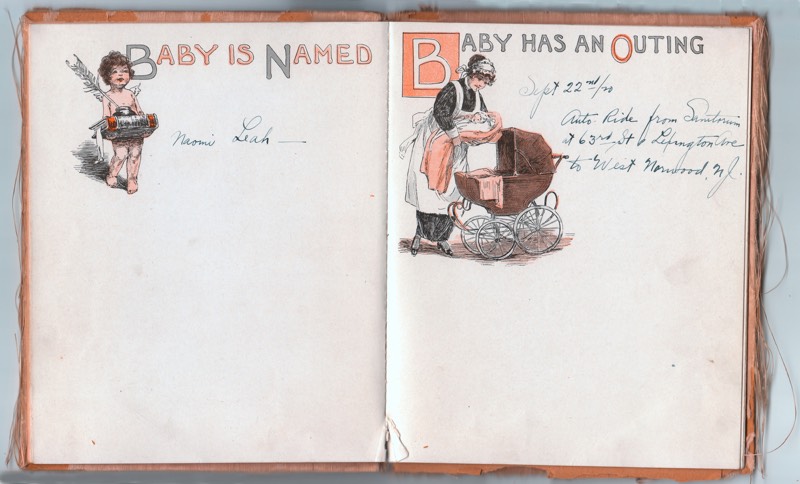 BABY IS NAMED
Naomi Leah —
BABY HAS AN OUTING
Sept 22nd/20
Auto Ride from Sanitorium
at 63rd St & Lexington Ave
to West Norwood, N.J.